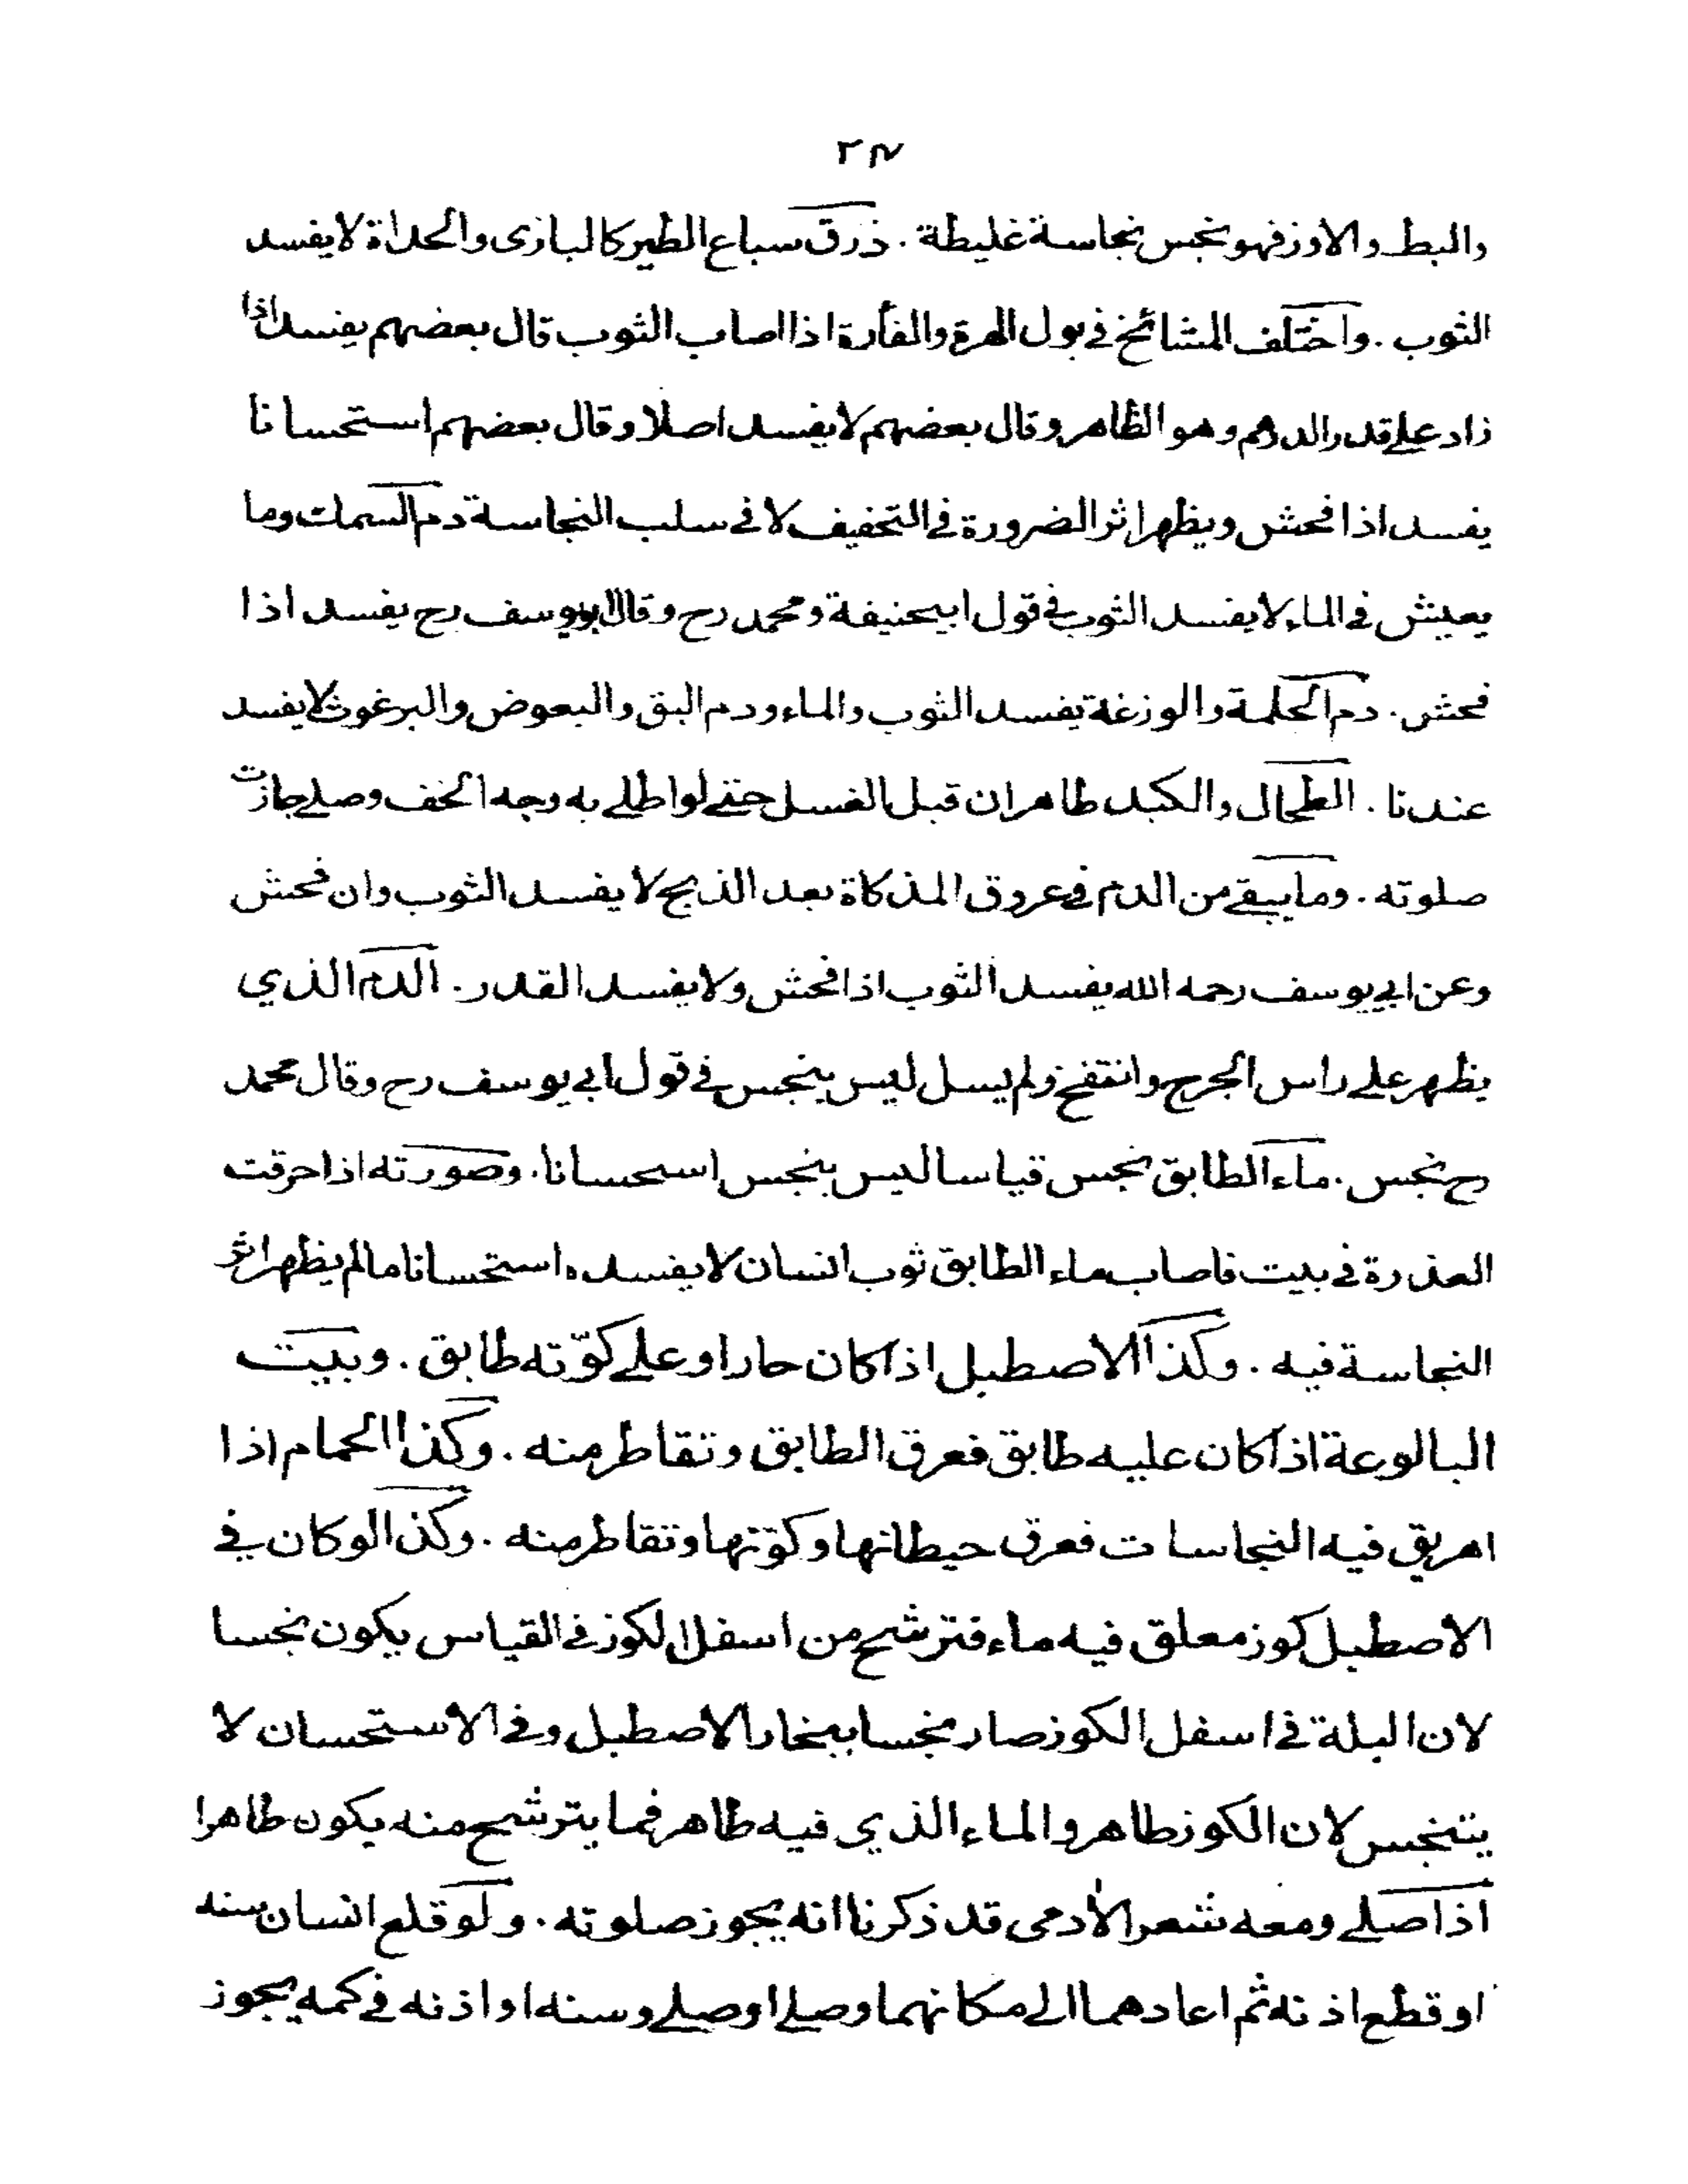 ٢٧
والبط والاوز فهو نجس نجاسة غليظة . ذرق سباع الطير كالبازى والحداة لا يفسد
الثوب . واختلف المشائخ في بول الهرة والفأرة اذا اصاب الثوب قال بعضهم يفسد اذا
زاد على قدر الدرهم وهو الظاهر وقال بعضهم لا يفسد اصلا وقال بعضهم استحسانا
يفسد اذا فحش ويظهر اثر الضرورة في التخفيف لا في سلب النجاسة دم السمك وما
يعيش في الماء لا يفسد الثوب في قول ابيحنيفة ومحمد رح وقال ابويوسف رح يفسد اذا
فحش . دم الحلمة والوزغة يفسد الثوب والماء ودم البق والبعوض والبرغوث لا يفسد
عندنا . الطحال والكبد طاهران قبل الغسل حتى لو اطلى به وجه الخف وصلى جازت
صلوته . وما يبقى من الدم في عروق المذكاة بعد الذبح لا يفسد الثوب وان فحش
وعن ابي يوسف رحمه الله يفسد الثوب اذا فحش ولا يفسد القدر . الدم الذي
يظهر على راس الجرح وانتفخ ولم يسل ليس بنجس في قول ابي يوسف رح وقال محمد
رح نجس . ماء الطابق نجس قياسا ليس بنجس استحسانا . وصورته اذا احرقت
العذرة في بيت فاصاب ماء الطابق ثوب انسان لا يفسده استحسانا مالم يظهر اثر
النجاسة فيه . وكذا الاصطبل اذا كان حارا وعلى كوّته طابق . وبيت
البالوعة اذا كان عليه طابق فعرق الطابق وتقاطر منه . وكذا الحمام اذا
اهريق فيه النجاسات فعرق حيطانها وكوّتها وتقاطر منه . وكذا لو كان في
الاصطبل كوز معلق فيه ماء فترشح من اسفل الكوز في القياس يكون نجسا
لان البلة في اسفل الكوز صار نجسا ببخار الاصطبل وفي الاستحسان لا
يتنجس لان الكوز طاهر والماء الذي فيه طاهر فما يترشح منه يكون طاهرا
اذا صلى ومعه شعر الآدمى قد ذكرنا انه يجوز صلوته . ولو قلع انسان سنه
او قطع اذنه ثم اعادهما الى مكانهما وصلى او صلى وسنه او اذنه في كمه يجوز